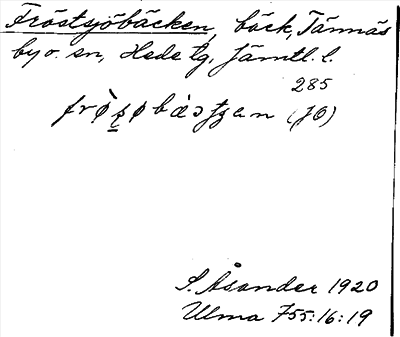 Fröstsjöbäcken, bäck, Tännäs
by o. sn, Hede tg, Jämtl. l.
285
(JÖ)
S. Åsander 1920
Ulma 755:16:19